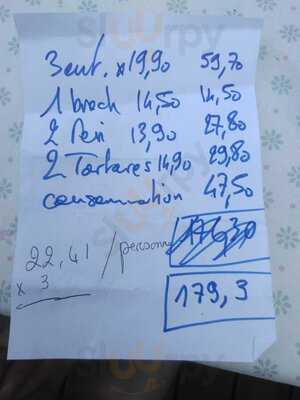 3 ent. x 19,90 59,70
1 broch 14,50 14,50
2 Pein 13,90 27,80
2 Tartares 14,90 29,80
consommation 47,50
179,3
22,41 / personne
x 3